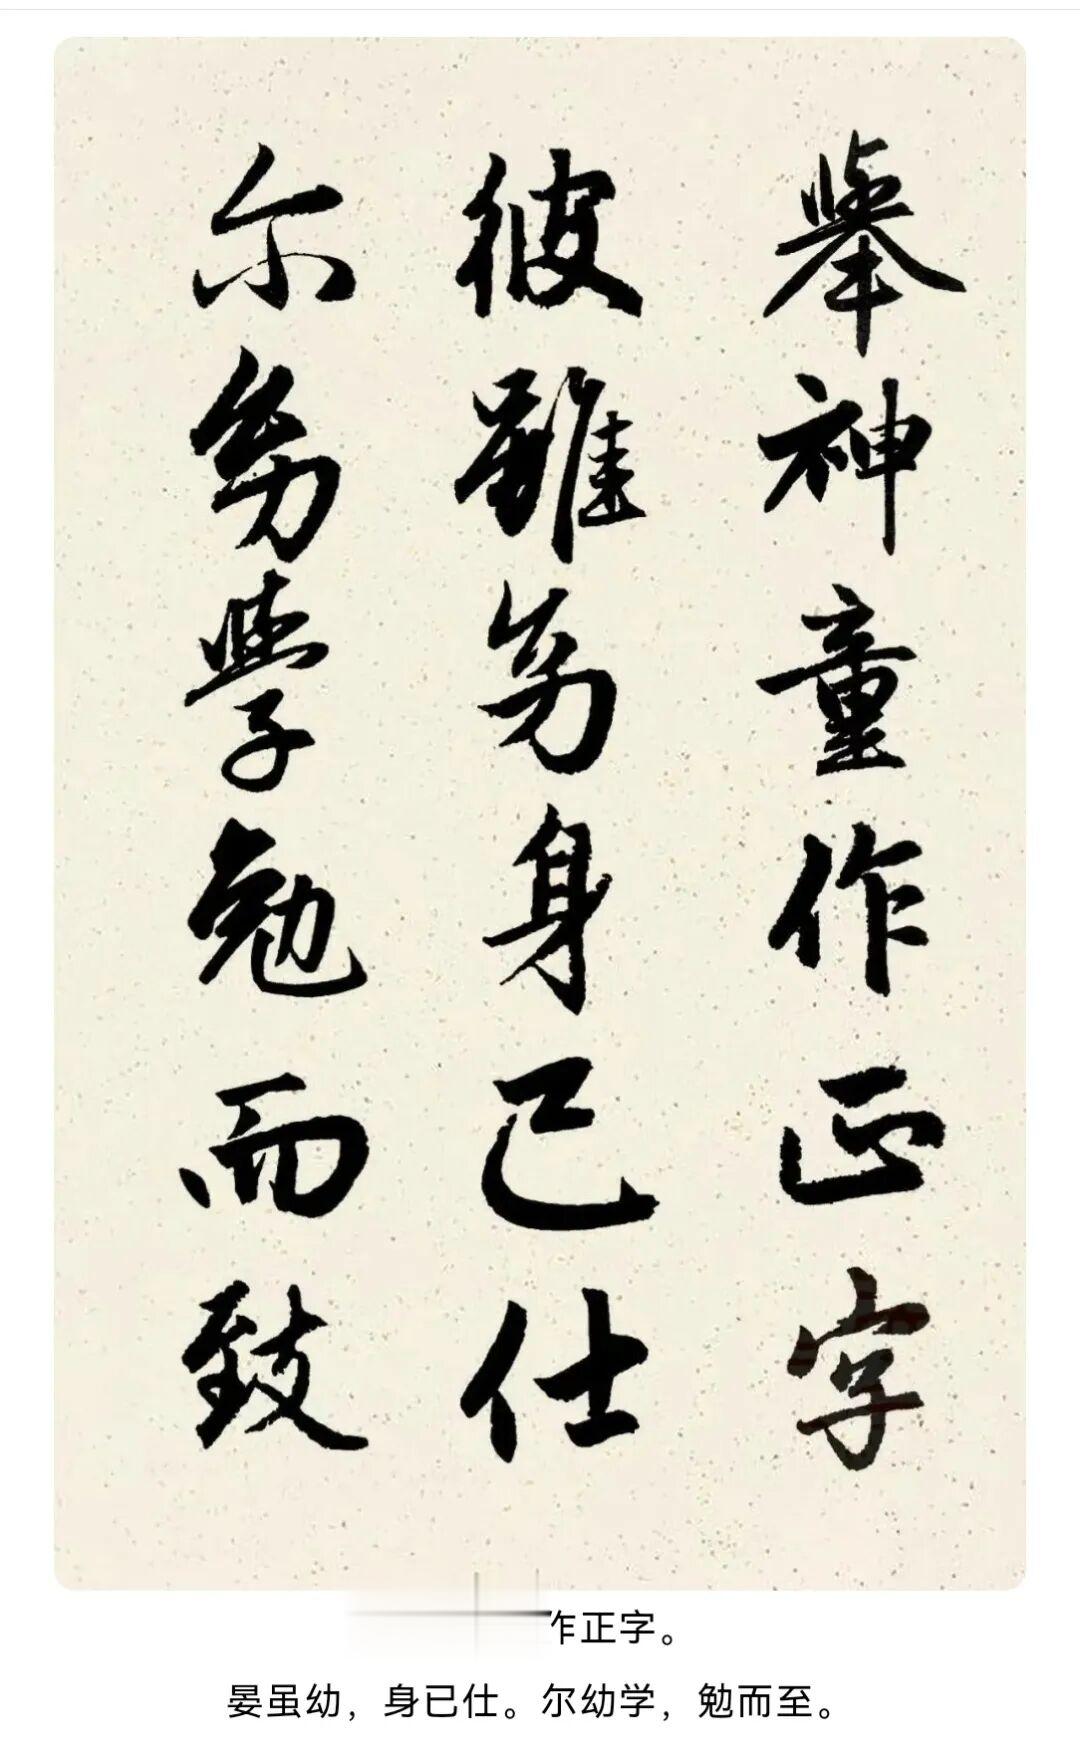 舉神童作正字
彼雖幼身己仕
尔幼學勉而致
作正字。
晏虽幼，身已仕。尔幼学，勉而至。